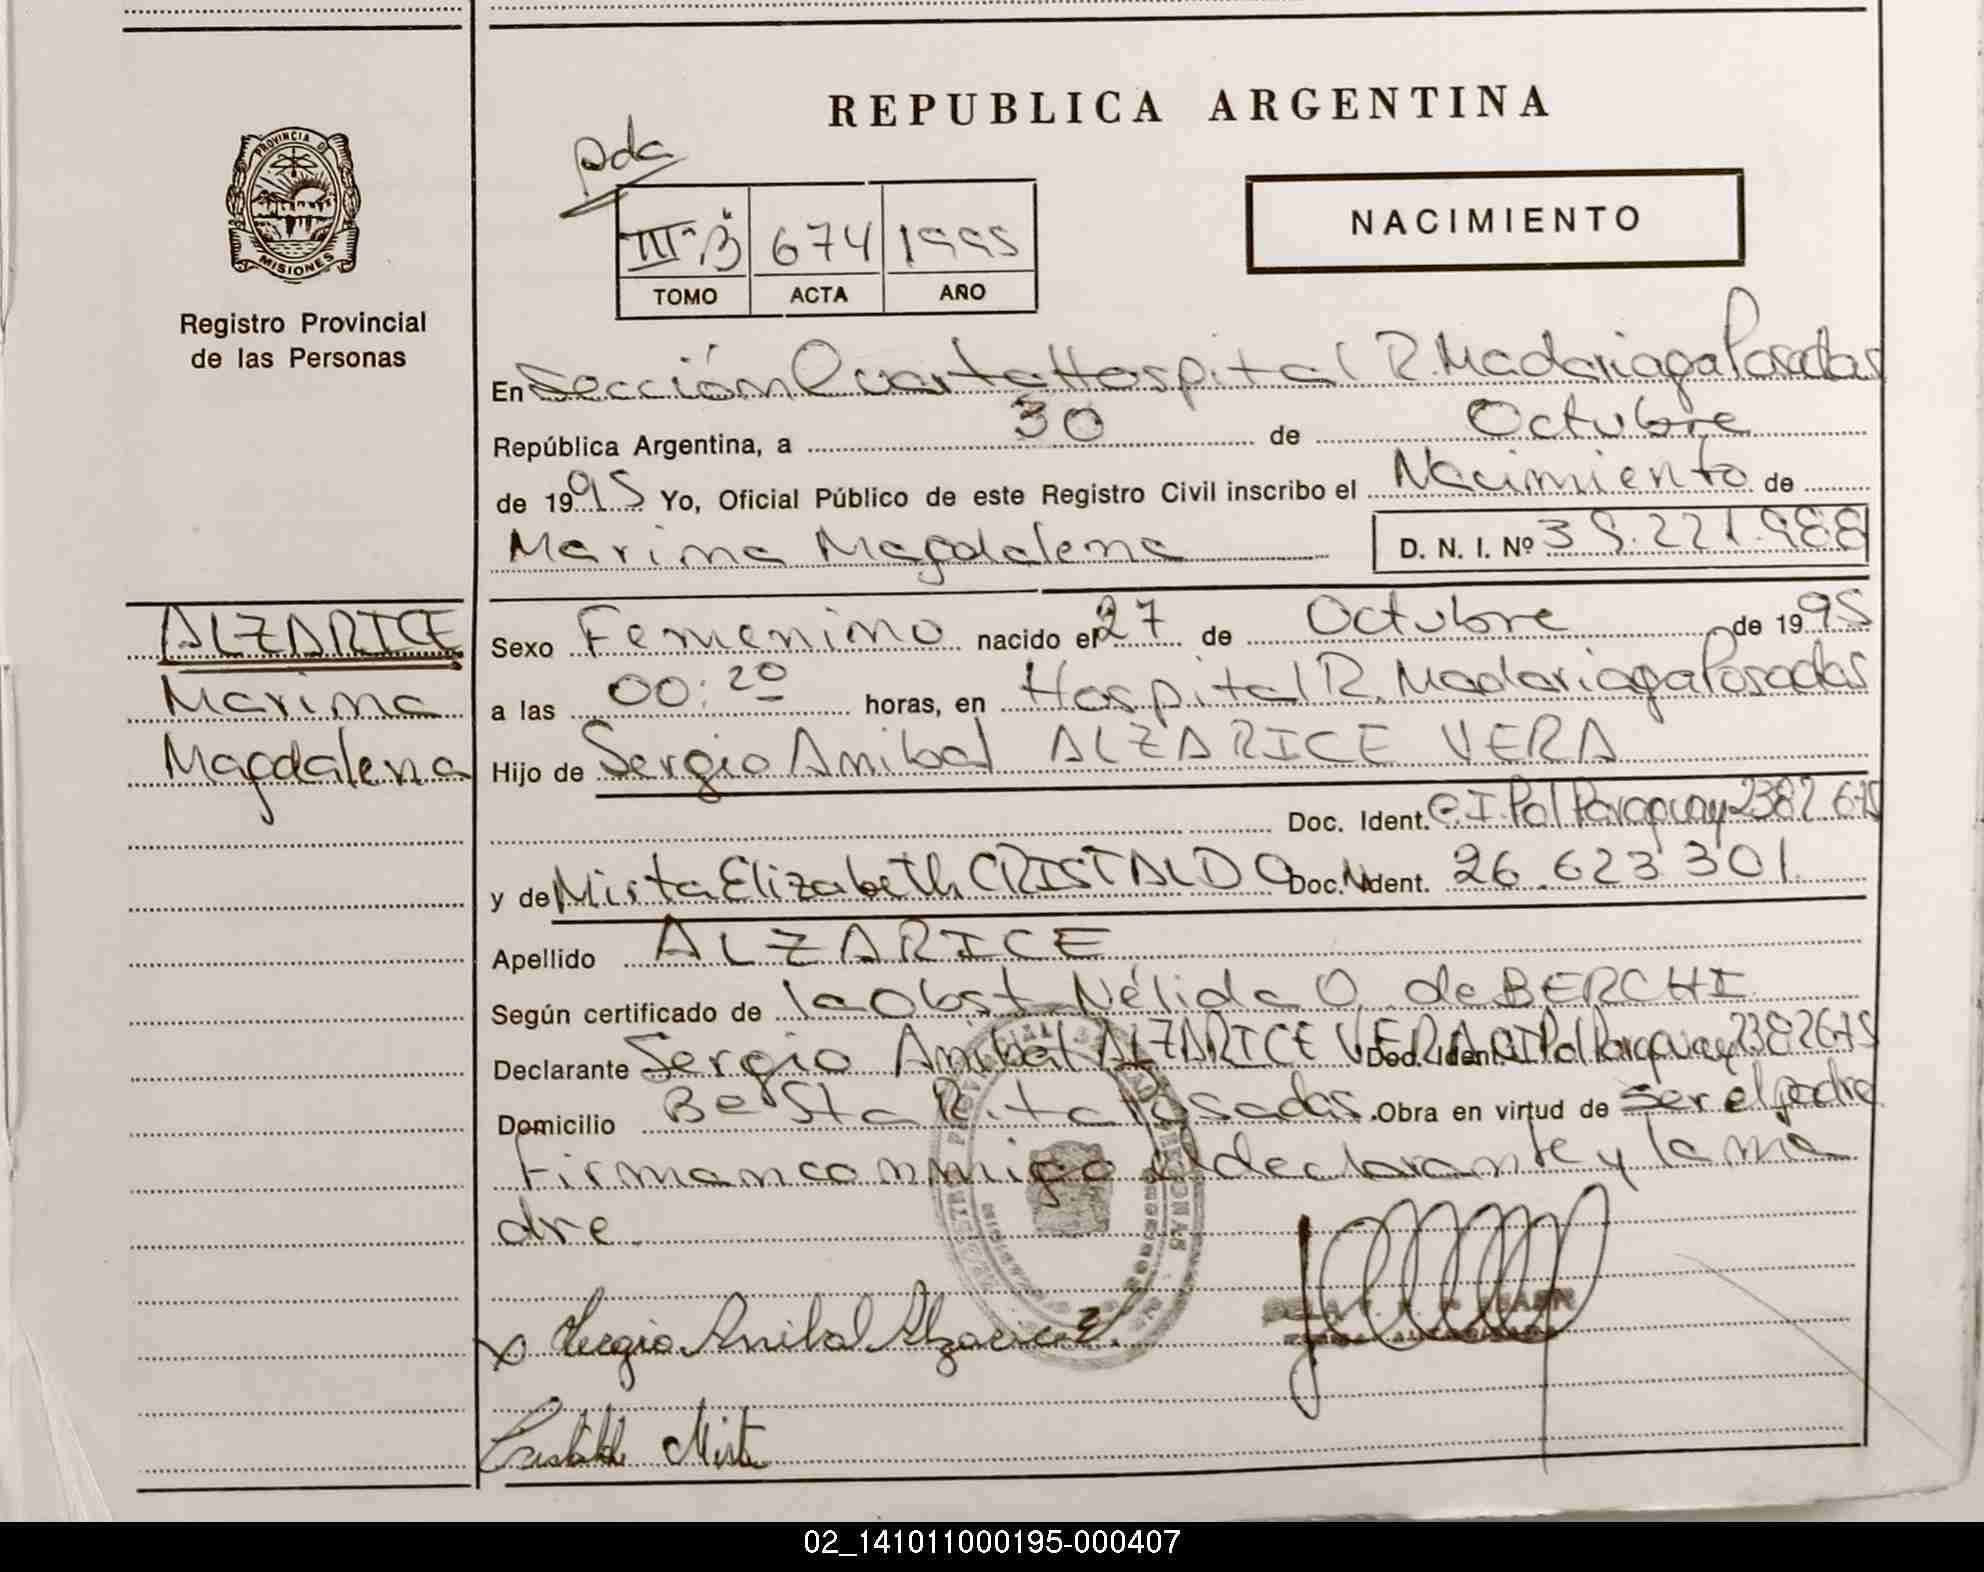 REPUBLICA ARGENTINA
pda
NACIMIENTO
III-B 674 1995
TOMO ACTA AÑO
PROVINCIA DE
MISIONES
Registro Provincial
de las Personas
En Sección Cuarta Hospital R. Madariaga Posadas
República Argentina, a 30 de Octubre
de 1995 Yo, Oficial Público de este Registro Civil inscribo el Nacimiento de
Marina Magdalena D. N. I. Nº 39.221.988
ALZARICE
Marina
Magdalena
Sexo Femenino nacido el 27 de Octubre de 1995
a las 00:20 horas, en Hospital R. Madariaga Posadas
Hijo de Sergio Anibal ALZARICE VERA
Doc. Ident. C.I.Pol Paraguay 2382675
y de Mirta Elizabeth CRISTALDO Doc. Ident. 26.623.301
Apellido ALZARICE
Según certificado de la Obst Nélida O. de BERCHI
Declarante Sergio Anibal ALZARICE VERA Doc. Ident. CI Pol Paraguay 2382675
Domicilio Bº Sta Rita Posadas. Obra en virtud de ser el padre
Firman conmigo el declarante y la ma
dre.
Sergio Anibal Alzarice
Cristaldo Mirta
02_141011000195-000407